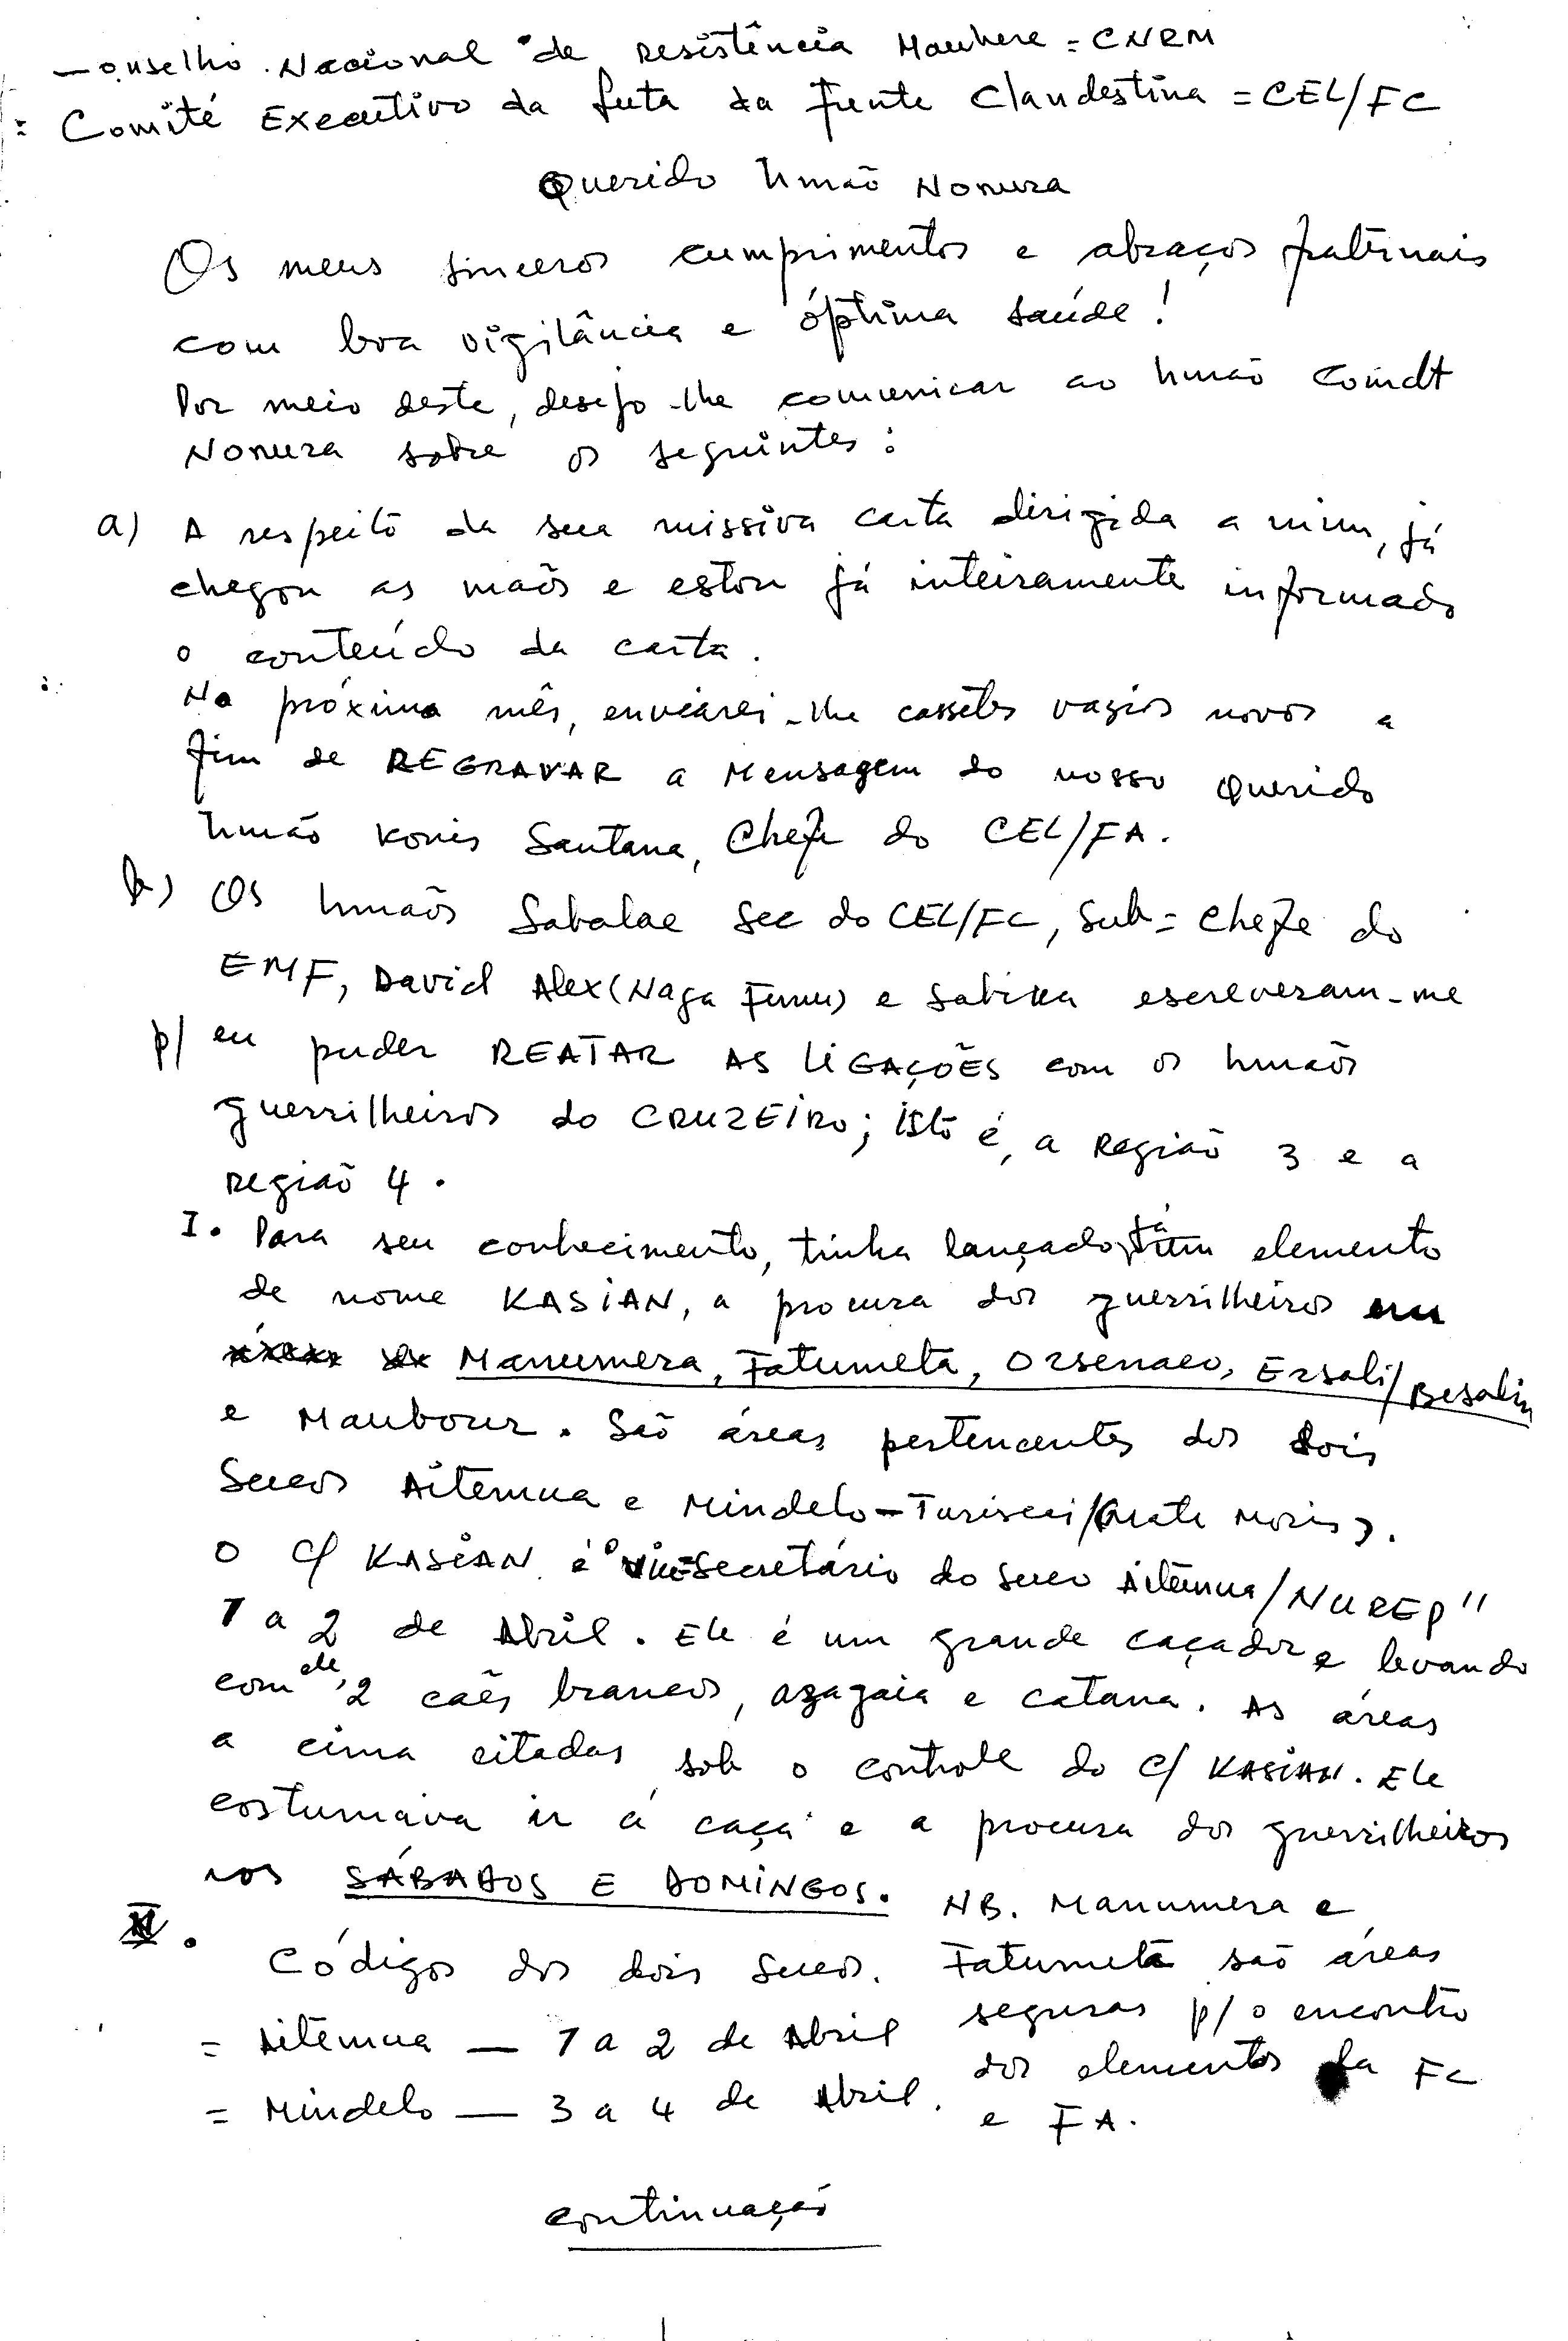 Conselho Nacional de Resistência Maubere = CNRM
= Comité Executivo da luta da Frente Clandestina = CEL/FC
Querido Irmão Nonura
Os meus sinceros cumprimentos e abraços fraternais
com boa vigilância e óptima saúde!
Por meio deste, desejo-lhe comunicar ao Irmão Comdt
Nonura sobre os seguintes:
a) A respeito da sua missiva carta dirigida a mim, já
chegou as maõs e estou já inteiramente informado
o conteúdo da carta.
No próximo mês, enviarei-lhe cassetes vazios novos a
fim de REGRAVAR a Mensagem do nosso Querido
Irmão Konis Santana, Chefe do CEL/FA.
b) Os Irmaõs Sabalae Sec do CEL/FC, Sub=Chefe do
EMF, David Alex (Naga Fumu) e Sabika escreveram-me
p/ eu puder REATAR AS LIGAÇÕES com os Irmaõs
guerrilheiros do CRUZEIRO; isto é, a Região 3 e a
Região 4.
I. Para seu conhecimento, tinha lançado já um elemento
de nome KASIAN, a procura dos guerrilheiros em
Manumera, Fatumeta, Orsenaeo, Ersali/Besalin
e Maubour. São áreas pertencentes dos dois
Sucos Aitemua e Mindelo-Turiscai/(Mate Moris).
O C/ KASIAN é o "Vice-Secretário do Suco Aitemua/NUREP"
1 a 2 de Abril. Ele é um grande caçador e levando
com ele, 2 caẽs brancos, azagaia e catana. As áreas
a cima citadas sob o controle do C/ KASIAN. Ele
costumava ir á caça e a procura dos guerrilheiros
nos SÁBADOS E DOMINGOS.
II. Códigos dos dois Sucos.
= Aitemua — 1 a 2 de Abril
= Mindelo — 3 a 4 de Abril.
NB. Manumera e
Fatumeta são áreas
seguras p/ o encontro
dos elementos da FC
e FA.
continuação